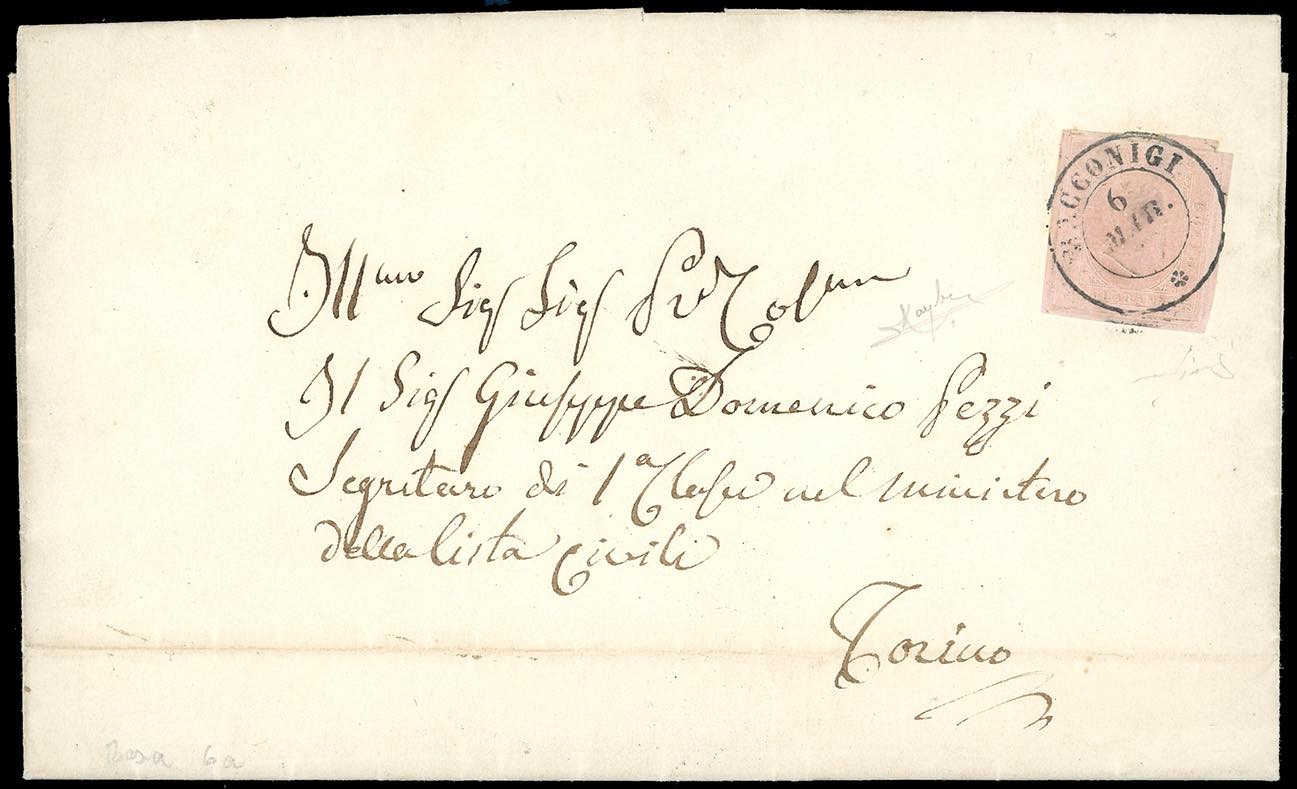 RACCONIGI
6
MAR.
Ill.mo Sig Sig P
Il Sig Giuseppe Domenico Pezzi
Segretaro di 1a Classe nel ministero
della lista Civili
Torino
Rosa 6a